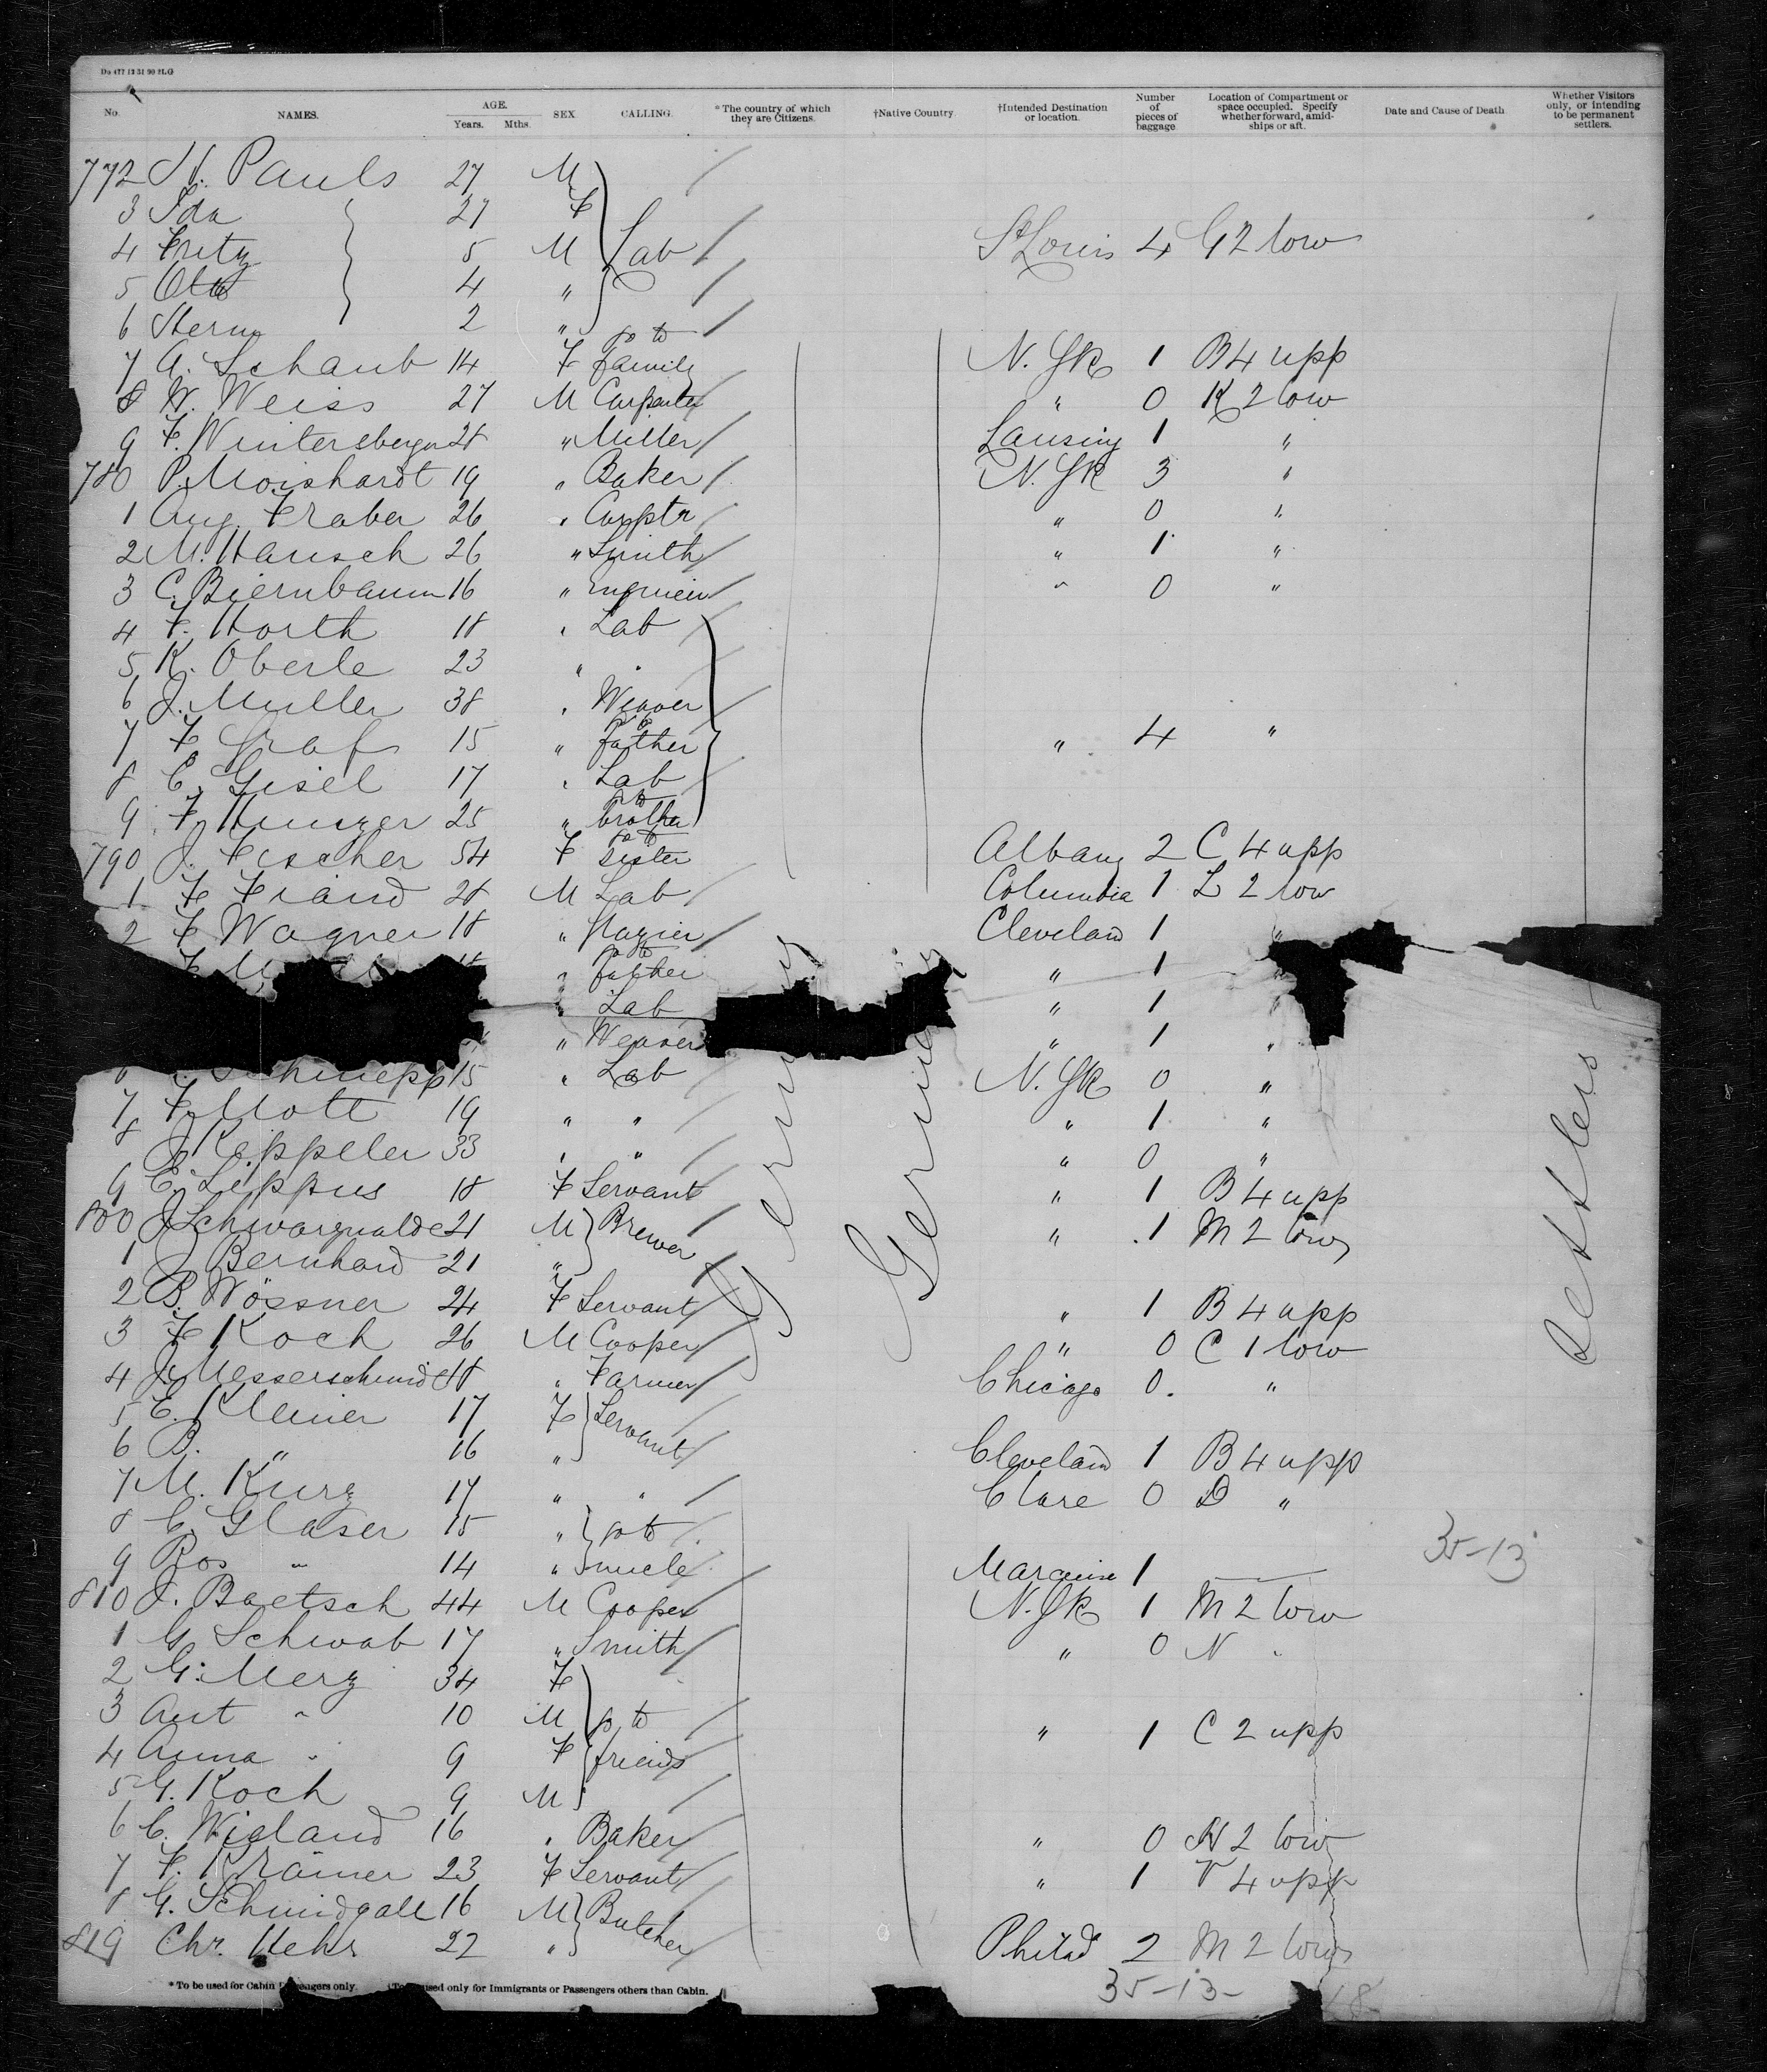 Do 477 12 31 90 2LG
No. NAMES. AGE. Years. Mths. SEX CALLING. * The country of which they are Citizens. †Native Country †Intended Destination or location. Number of pieces of baggage Location of Compartment or space occupied. Specify whether forward, amidships or aft. Date and Cause of Death Whether Visitors only, or intending to be permanent settlers.
772 H. Pauls 27 M
3 Ida 27 F
4 Fritz 5 M Lab St Louis 4 G 2 low
5 Otto 4 "
6 Herm 2 "
7 A. Schaub 14 F go to family N. Yk 1 B 4 upp
8 W. Weiss 27 M Carpenter " 0 K 2 low
9 F. Wintersberger 28 " Miller Lansing 1 "
780 P. Moishardt 19 " Baker N. Yk 3 "
1 Aug. Fraber 26 " Carptr " 0 "
2 M. Hausch 26 " Smith " 1 "
3 C. Biernbaum 16 " " 0 "
4 F. Horth 18 " Lab
5 K. Oberle 23 " "
6 J. Muller 38 " Weaver
7 F. Graf 15 " go to father " 4 "
8 C. Gisel 17 " Lab
9 F. Hunzer 25 " go to brother
790 J. Fischer 54 F go to sister Albany 2 C 4 upp
1 F Friand 28 M Lab Columbia 1 L 2 low
2 F Wagner 18 " Glazier Cleveland 1 "
" go to father " 1 "
" Lab " 1
" Weaver " 1 "
Schnepp 15 " Lab N. Yk 0 "
7 F. Mott 19 " " " 1 "
8 J Keppeler 33 " " " 0 "
9 E. Leppus 18 F Servant " 1 B 4 upp
800 J Schwarzwalde 21 M Brewer " 1 M 2 low
1 J Bernhard 21 "
2 B. Wössner 24 F Servant " 1 B 4 upp
3 F Koch 26 M Cooper " 0 C 1 low
4 J. Messerschmid 48 " Farmer Chicago 0 "
5 E. Kleiner 17 F Servant
6 B. " 16 " Cleveland 1 B 4 upp
7 M. Kurz 17 " " Clare 0 D "
8 C. Glaser 15 " go to
9 Ros " 14 " uncle 1
810 J. Baetsch 44 M Cooper N. Yk 1 M 2 low
1 G Schwab 17 " Smith " 0 N "
2 G. Merz 34 F
3 Ant " 10 M go to " 1 C 2 upp
4 Anna " 9 F friends
5 G. Koch 9 M
6 C. Wieland 16 " Baker " 0 N 2 low
7 F. Krämer 23 F Servant " 1 T 4 upp
8 G. Schmidgall 16 M Butcher
819 Chr. Hehr 22 " Philad 2 M 2 low
Germany
Germany
settlers
35-13
35-13-
* To be used for Cabin Passengers only. †To be used only for Immigrants or Passengers others than Cabin.